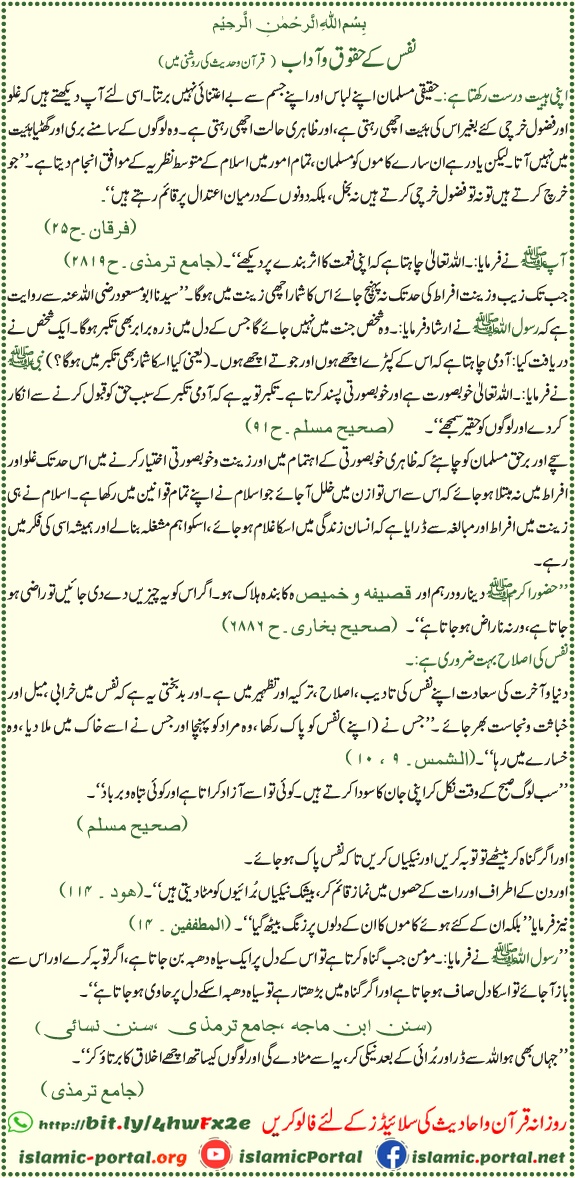 بِسْمِ اللهِ الرَّحْمٰنِ الرَّحِيْمِ
نفس کے حقوق و آداب ( قرآن و حدیث کی روشنی میں )
اپنی ہیئت درست رکھتا ہے:۔ حقیقی مسلمان اپنے لباس اور اپنے جسم سے بے اعتنائی نہیں برتتا۔ اسی لئے آپ دیکھتے ہیں کہ غلو
اور فضول خرچی کئے بغیر اس کی ہیئت اچھی رہتی ہے، اور ظاہری حالت اچھی رہتی ہے۔ وہ لوگوں کے سامنے بری اور گھٹیا ہیئت
میں نہیں آتا۔ لیکن یاد رہے ان سارے کاموں کو مسلمان، تمام امور میں اسلام کے متوسط نظریہ کے موافق انجام دیتا ہے۔ ’’جو
خرچ کرتے ہیں تو نہ تو فضول خرچی کرتے ہیں نہ بخل، بلکہ دونوں کے درمیان اعتدال پر قائم رہتے ہیں‘‘۔
(فرقان۔ ح۲۵)
آپ ﷺ نے فرمایا:۔ اللہ تعالیٰ چاہتا ہے کہ اپنی نعمت کا اثر بندے پر دیکھے‘‘۔ (جامع ترمذی۔ ح۲۸۱۹)
جب تک زیب و زینت افراط کی حد تک نہ پہنچ جائے اس کا شمار اچھی زینت میں ہوگا۔ ’’سیدنا ابو مسعود رضی اللہ عنہ سے روایت
ہے کہ رسول اللہ ﷺ نے ارشاد فرمایا:۔ وہ شخص جنت میں نہیں جائے گا جس کے دل میں ذرہ برابر بھی تکبر ہوگا۔ ایک شخص نے
دریافت کیا: آدمی چاہتا ہے کہ اس کے کپڑے اچھے ہوں اور جوتے اچھے ہوں۔ (یعنی کیا اسکا شمار بھی تکبر میں ہوگا؟) نبی ﷺ
نے فرمایا:۔ اللہ تعالیٰ خوبصورت ہے اور خوبصورتی پسند کرتا ہے۔ تکبر تو یہ ہے کہ آدمی تکبر کے سبب حق کو قبول کرنے سے انکار
کر دے اور لوگوں کو حقیر سمجھے‘‘۔ (صحیح مسلم۔ ح۹۱)
سچے اور برحق مسلمان کو چاہئے کہ ظاہری خوبصورتی کے اہتمام میں اور زینت و خوبصورتی اختیار کرنے میں اس حد تک غلو اور
افراط میں نہ مبتلا ہو جائے کہ اس سے اس توازن میں خلل آ جائے جو اسلام نے اپنے تمام قوانین میں رکھا ہے۔ اسلام نے ہی
زینت میں افراط اور مبالغہ سے ڈرایا ہے کہ انسان زندگی میں اسکا غلام ہو جائے، اسکو اہم مشغلہ بنا لے اور ہمیشہ اسی کی فکر میں
رہے۔
’’حضور اکرم ﷺ دینار و درہم اور قصیفہ و خمیصہ کا بندہ ہلاک ہو۔ اگر اس کو یہ چیزیں دے دی جائیں تو راضی ہو
جاتا ہے، ورنہ ناراض ہو جاتا ہے‘‘۔ (صحیح بخاری۔ ح ۶۸۸۶)
نفس کی اصلاح بہت ضروری ہے:۔
دنیا و آخرت کی سعادت اپنے نفس کی تادیب، اصلاح، تزکیہ اور تطہیر میں ہے۔ اور بدبختی یہ ہے کہ نفس میں خرابی، میل اور
خباثت و نجاست بھر جائے۔ ’’جس نے (اپنے) نفس کو پاک رکھا، وہ مراد کو پہنچا اور جس نے اسے خاک میں ملا دیا، وہ
خسارے میں رہا‘‘۔ (الشمس۔ ۹ ، ۱۰)
’’سب لوگ صبح کے وقت نکل کر اپنی جان کا سودا کرتے ہیں۔ کوئی تو اسے آزاد کراتا ہے اور کوئی تباہ و برباد‘‘۔
(صحیح مسلم)
اور اگر گناہ کر بیٹھے تو توبہ کریں اور نیکیاں کریں تاکہ نفس پاک ہو جائے۔
اور دن کے اطراف اور رات کے حصوں میں نماز قائم کر، بیشک نیکیاں بُرائیوں کو مٹا دیتی ہیں‘‘۔ (ھود۔ ۱۱۴)
نیز فرمایا ’’بلکہ ان کے کئے ہوئے کاموں کا ان کے دلوں پر زنگ بیٹھ گیا‘‘۔ (المطففین۔ ۱۴)
’’رسول اللہ ﷺ نے فرمایا:۔ مومن جب گناہ کرتا ہے تو اس کے دل پر ایک سیاہ دھبہ بن جاتا ہے، اگر توبہ کرے اور اس سے
باز آ جائے تو اسکا دل صاف ہو جاتا ہے اور اگر گناہ میں بڑھتا رہے تو سیاہ دھبہ اسکے دل پر حاوی ہو جاتا ہے‘‘۔
(سنن ابن ماجہ، جامع ترمذی، سنن نسائی)
’’جہاں بھی ہو اللہ سے ڈر اور بُرائی کے بعد نیکی کر، یہ اسے مٹا دے گی اور لوگوں کیساتھ اچھے اخلاق کا برتاؤ کر‘‘۔
(جامع ترمذی)
روزانہ قرآن و احادیث کی سلائیڈز کے لئے فالو کریں http://bit.ly/4hwFx2e
islamic-portal.org IslamicPortal islamic.portal.net